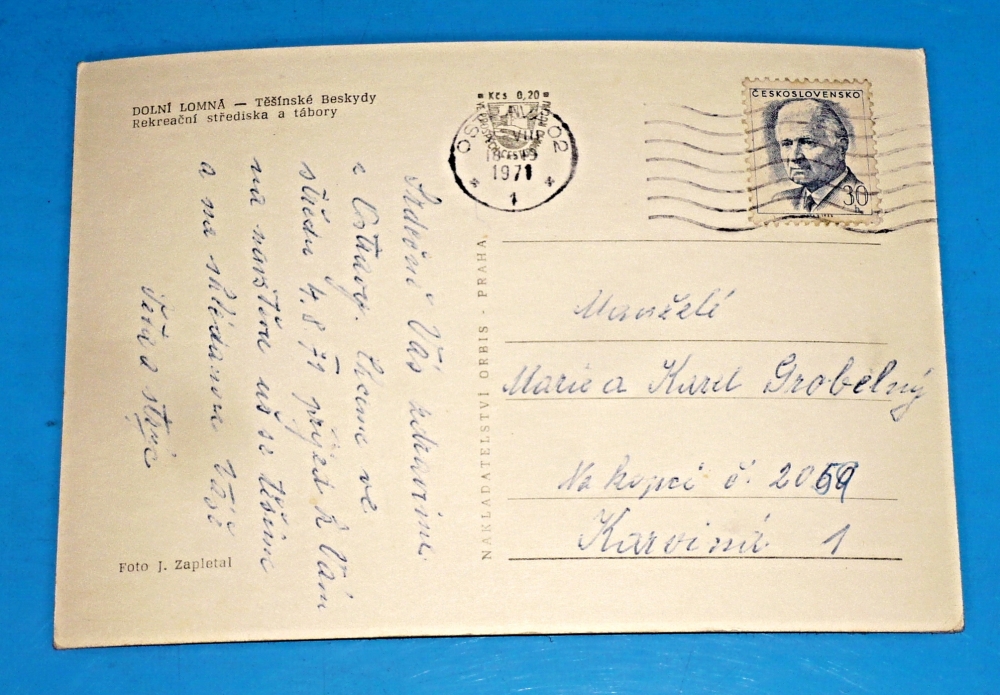 DOLNÍ LOMNÁ — Těšínské Beskydy
Rekreační střediska a tábory
Srdečně Vás zdravíme
z Ostravy. Chceme ve
středu 4. 8. 71 přijet k Vám
na návštěvu už se těšíme
a na shledanou Vaše
teta a strýc
Foto J. Zapletal
NAKLADATELSTVÍ ORBIS - PRAHA
Kčs 0,20
VIII
1971
1
ČESKOSLOVENSKO
30
Manželé
Marie a Karel Grobelný
Na kopci č. 2059
Karviná 1